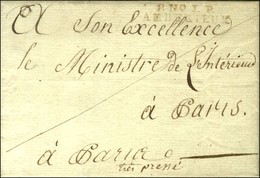 P. No. 1. P.
A Son Excellence
le Ministre de L'Intérieur
à Paris.
à Paris
très pressé